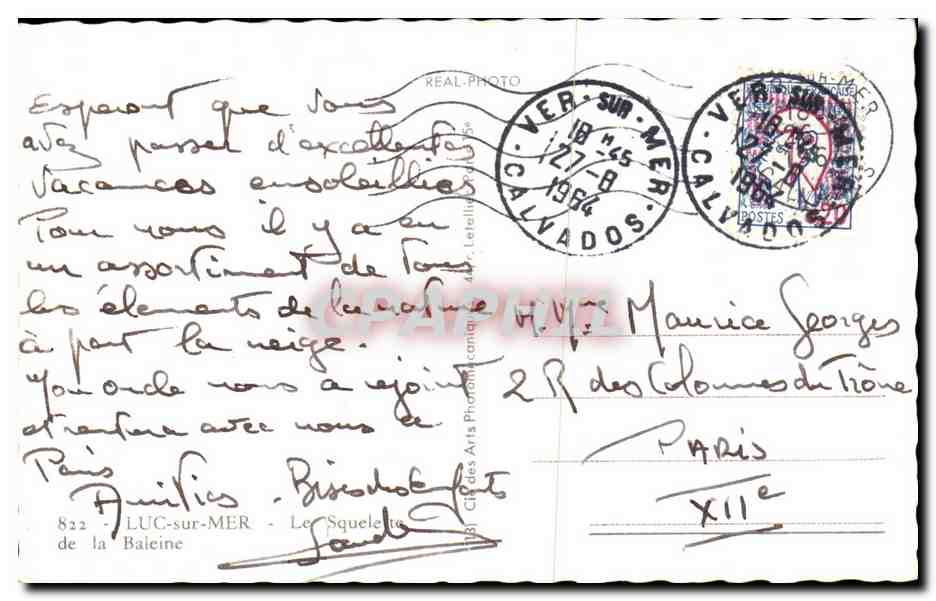 REAL-PHOTO
Esperant que vous
avez passer d'excellentes
vacances ensoleillées
Pour nous il y a eu
un assortiment de tous
les éléments de la nature
à part la neige.
nous a rejoint
et rentrera avec nous à
Paris
Amitiés - Bises des enfants
822 - LUC-sur-MER - Le Squelette
de la Baleine
131 Cie des Arts Photomécaniques 44, r. Letellier Paris 15e
VER-SUR-MER
18 H 45
27-8
1964
CALVADOS
VER-SUR-MER
18 H 45
27-8
1964
CALVADOS
POSTES
CPAPHIL
Maurice Georges
2 R des Colonnes du Trône
PARIS
XIIe